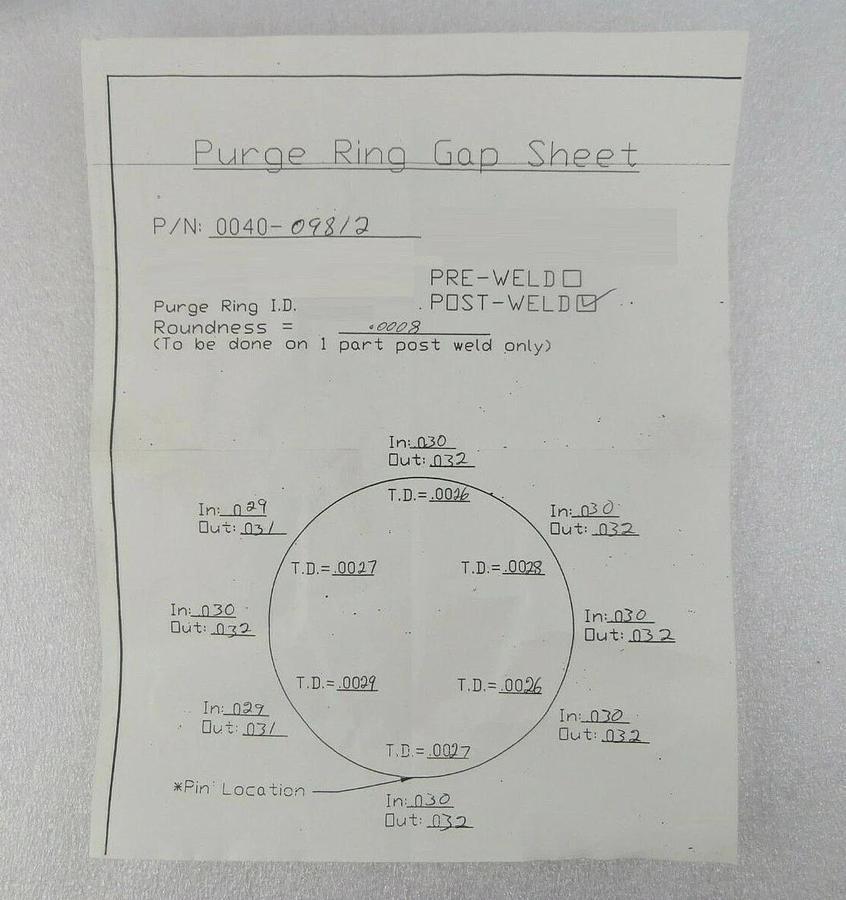 Purge Ring Gap Sheet
P/N: 0040-09812
PRE-WELD
POST-WELD
Purge Ring I.D.
Roundness = .0008
(To be done on 1 part post weld only)
In: .030
Out: .032
T.D.= .0026
In: .029
Out: .031
In: .030
Out: .032
T.D.= .0027
T.D.= .0028
In: .030
Out: .032
In: .030
Out: .032
T.D.= .0029
T.D.= .0026
In: .029
Out: .031
In: .030
Out: .032
T.D.= .0027
*Pin Location
In: .030
Out: .032